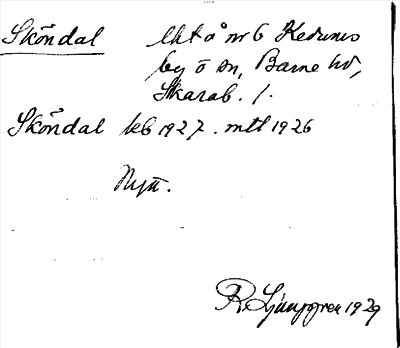 Sköndal lht å nr 6 Kedums
by o sn, Barne hd,
Skarab. l.
Sköndal kb 1927. mtl 1926
Nytt.
R. Ljunggren 1929